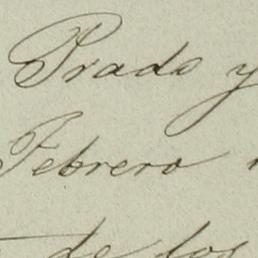 Prado y
Febrero
de los